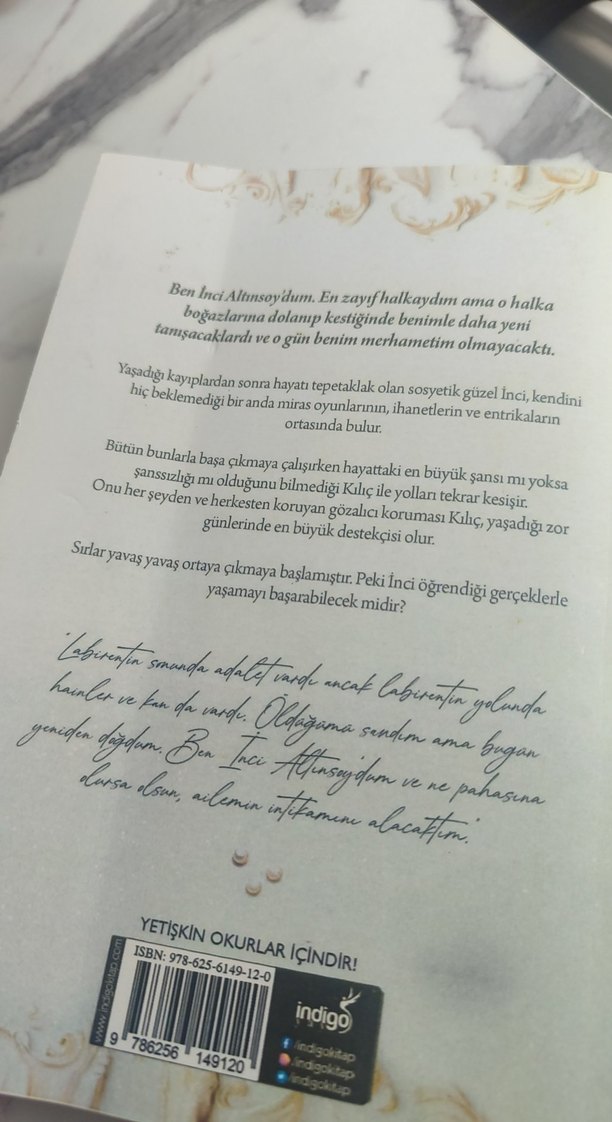 Ben İnci Altınsoy'dum. En zayıf halkaydım ama o halka
boğazlarına dolanıp kestiğinde benimle daha yeni
tanışacaklardı ve o gün benim merhametim olmayacaktı.
Yaşadığı kayıplardan sonra hayatı tepetaklak olan sosyetik güzel İnci, kendini
hiç beklemediği bir anda miras oyunlarının, ihanetlerin ve entrikaların
ortasında bulur.
Bütün bunlarla başa çıkmaya çalışırken hayattaki en büyük şansı mı yoksa
şanssızlığı mı olduğunu bilmediği Kılıç ile yolları tekrar kesişir.
Onu her şeyden ve herkesten koruyan gözalıcı koruması Kılıç, yaşadığı zor
günlerinde en büyük destekçisi olur.
Sırlar yavaş yavaş ortaya çıkmaya başlamıştır. Peki İnci öğrendiği gerçeklerle
yaşamayı başarabilecek midir?
'Labirentin sonunda adalet vardı ancak labirentin yolunda
hainler ve kan da vardı. Öldüğümü sandım ama bugün
yeniden doğdum. Ben İnci Altınsoy'dum ve ne pahasına
olursa olsun, ailemin intikamını alacaktım.'
YETİŞKİN OKURLAR İÇİNDİR!
www.indigokitap.com
ISBN: 978-625-6149-12-0
9 786256 149120
indigo
/indigokitap
/indigokitap
/indigokitap